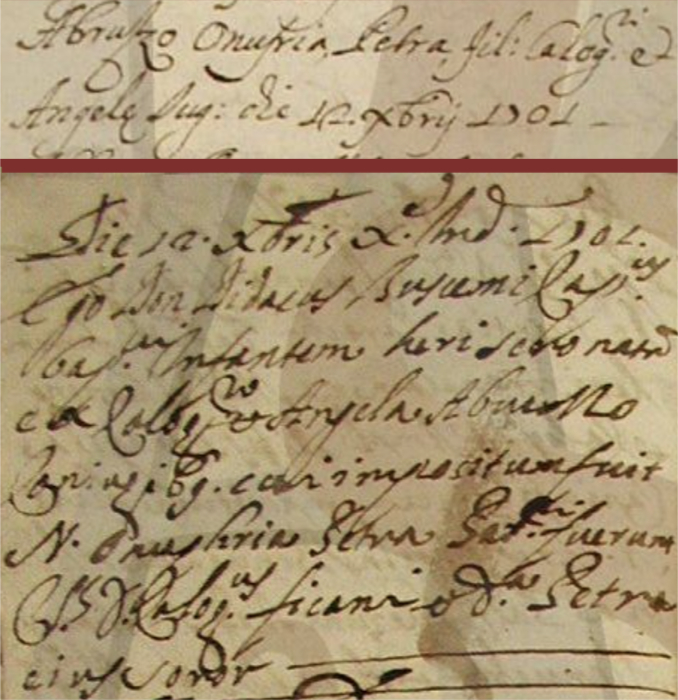 Abruzzo Onufria Petra fil: Calog:ri et
Angele Jug: die 12. Xbrij 1701
Die 12. Xbris X.e Ind. 1701.
Ego Don Didacus Buscemi Cap:us
bap:vi Infantem heri sero natã
ex Calog:ro et Angela Abruzzo
Coniugibg. cui impositum fuit
N. Onufria Petra Pat:ni fuerunt
Calog:us ficani et D.a Petra
eius soror